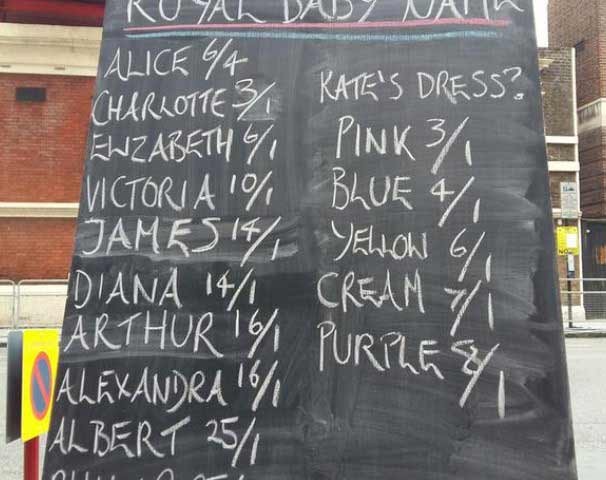 ROYAL BABY NAME
ALICE 6/4
CHARLOTTE 3/1
ELIZABETH 6/1
VICTORIA 10/1
JAMES 14/1
DIANA 14/1
ARTHUR 16/1
ALEXANDRA 16/1
ALBERT 25/1
KATE'S DRESS?
PINK 3/1
BLUE 4/1
YELLOW 6/1
CREAM 7/1
PURPLE 8/1